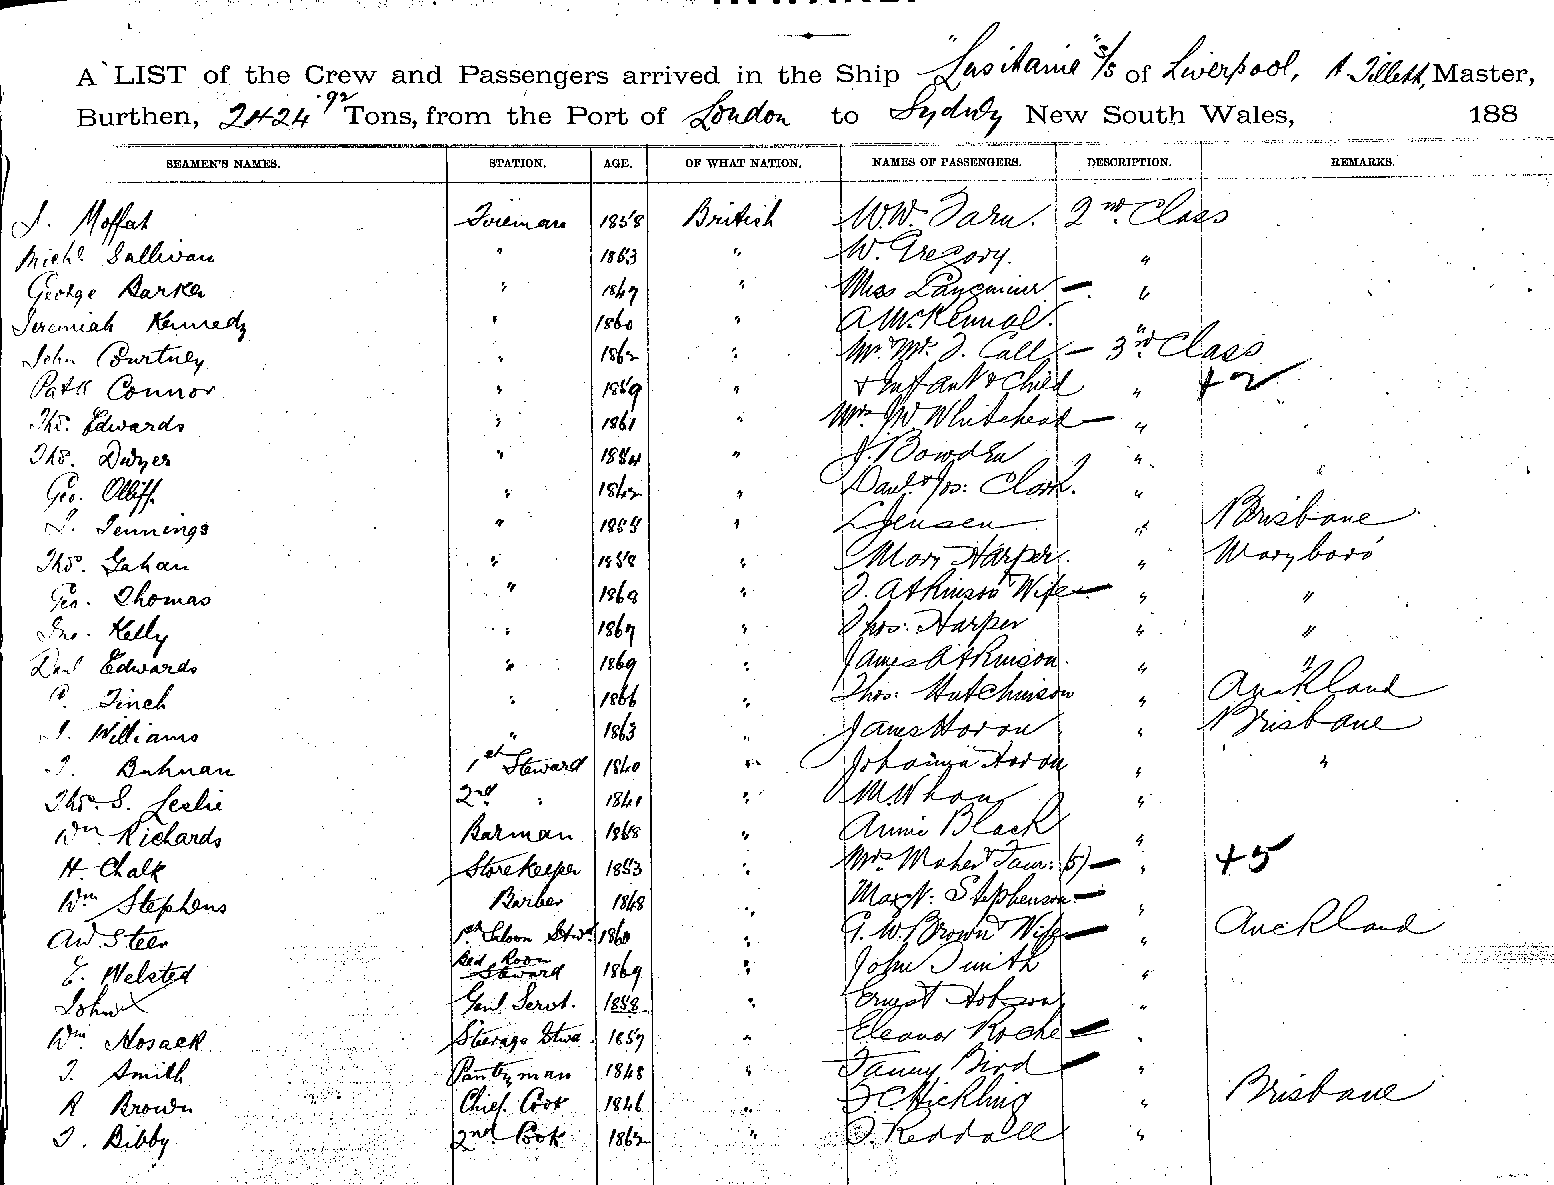 A LIST of the Crew and Passengers arrived in the Ship "Lusitania" s/s of Liverpool, A Tillett, Master,
Burthen, 2424 92 Tons, from the Port of London to Sydney New South Wales, 188
SEAMEN'S NAMES. STATION. AGE. OF WHAT NATION. NAMES OF PASSENGERS. DESCRIPTION. REMARKS.
J. Moffat Fireman 1858 British W.W. Tarn. 2nd Class
Michl Sullivan " 1863 " W. Gregory. "
George Barker " " Miss "
Jeremiah Kennedy " 1860 " A McKennal.
John Courtney " 1862 " Mr. Mrs. J. Call 3rd Class
Patk Connor " 1859 " + Infant & Child " +2
Thos. Edwards " 1861 " Mrs. Jno Whitehead "
Thos. Dwyer " " J. Bowden "
Geo. Olliff " 1862 " Danl & Jos: Clark. " "
J. Jennings " " L Jensen " Brisbane
Thos. Gahan " 1858 " Mary Harper. " Maryboro'
Geo. Thomas " " J. Atkinson & Wife " "
Jno. Kelly " " Thos: Harper " "
Danl Edwards " 1869 " James Atkinson. " "
P. Finch " 1866 " Thos: Hutchinson " Auckland
J. Williams " 1863 " James Horan " Brisbane
J. 1st Steward 1840 " Johanna Horan " "
Thos. S. Leslie 2nd " 1841 " M Whan "
Wm Richards Barman 1868 " Annie Black "
H. Chalk Storekeeper 1853 " Mrs Maher & Fam: (5) " +5
Wm Stephens Barber 1848 " Margt. Stephenson "
Aw. Steer 1st Saloon Stwd 1860 " G. W. Brown & Wife " Auckland
E. Welsted Bed Room Steward 1869 " John Smith "
John X Genl Servt. 1858 " Ernest Hobson "
Wm Hosack Steerage Stwd. 1857 " Eleanor Roche "
J. Smith Pantryman 1848 " Fanny Bird "
R Brown Chief Cook 1846 " F C Hickling " Brisbane
J. Bibby 2nd Cook 1862 " J. Reddall "